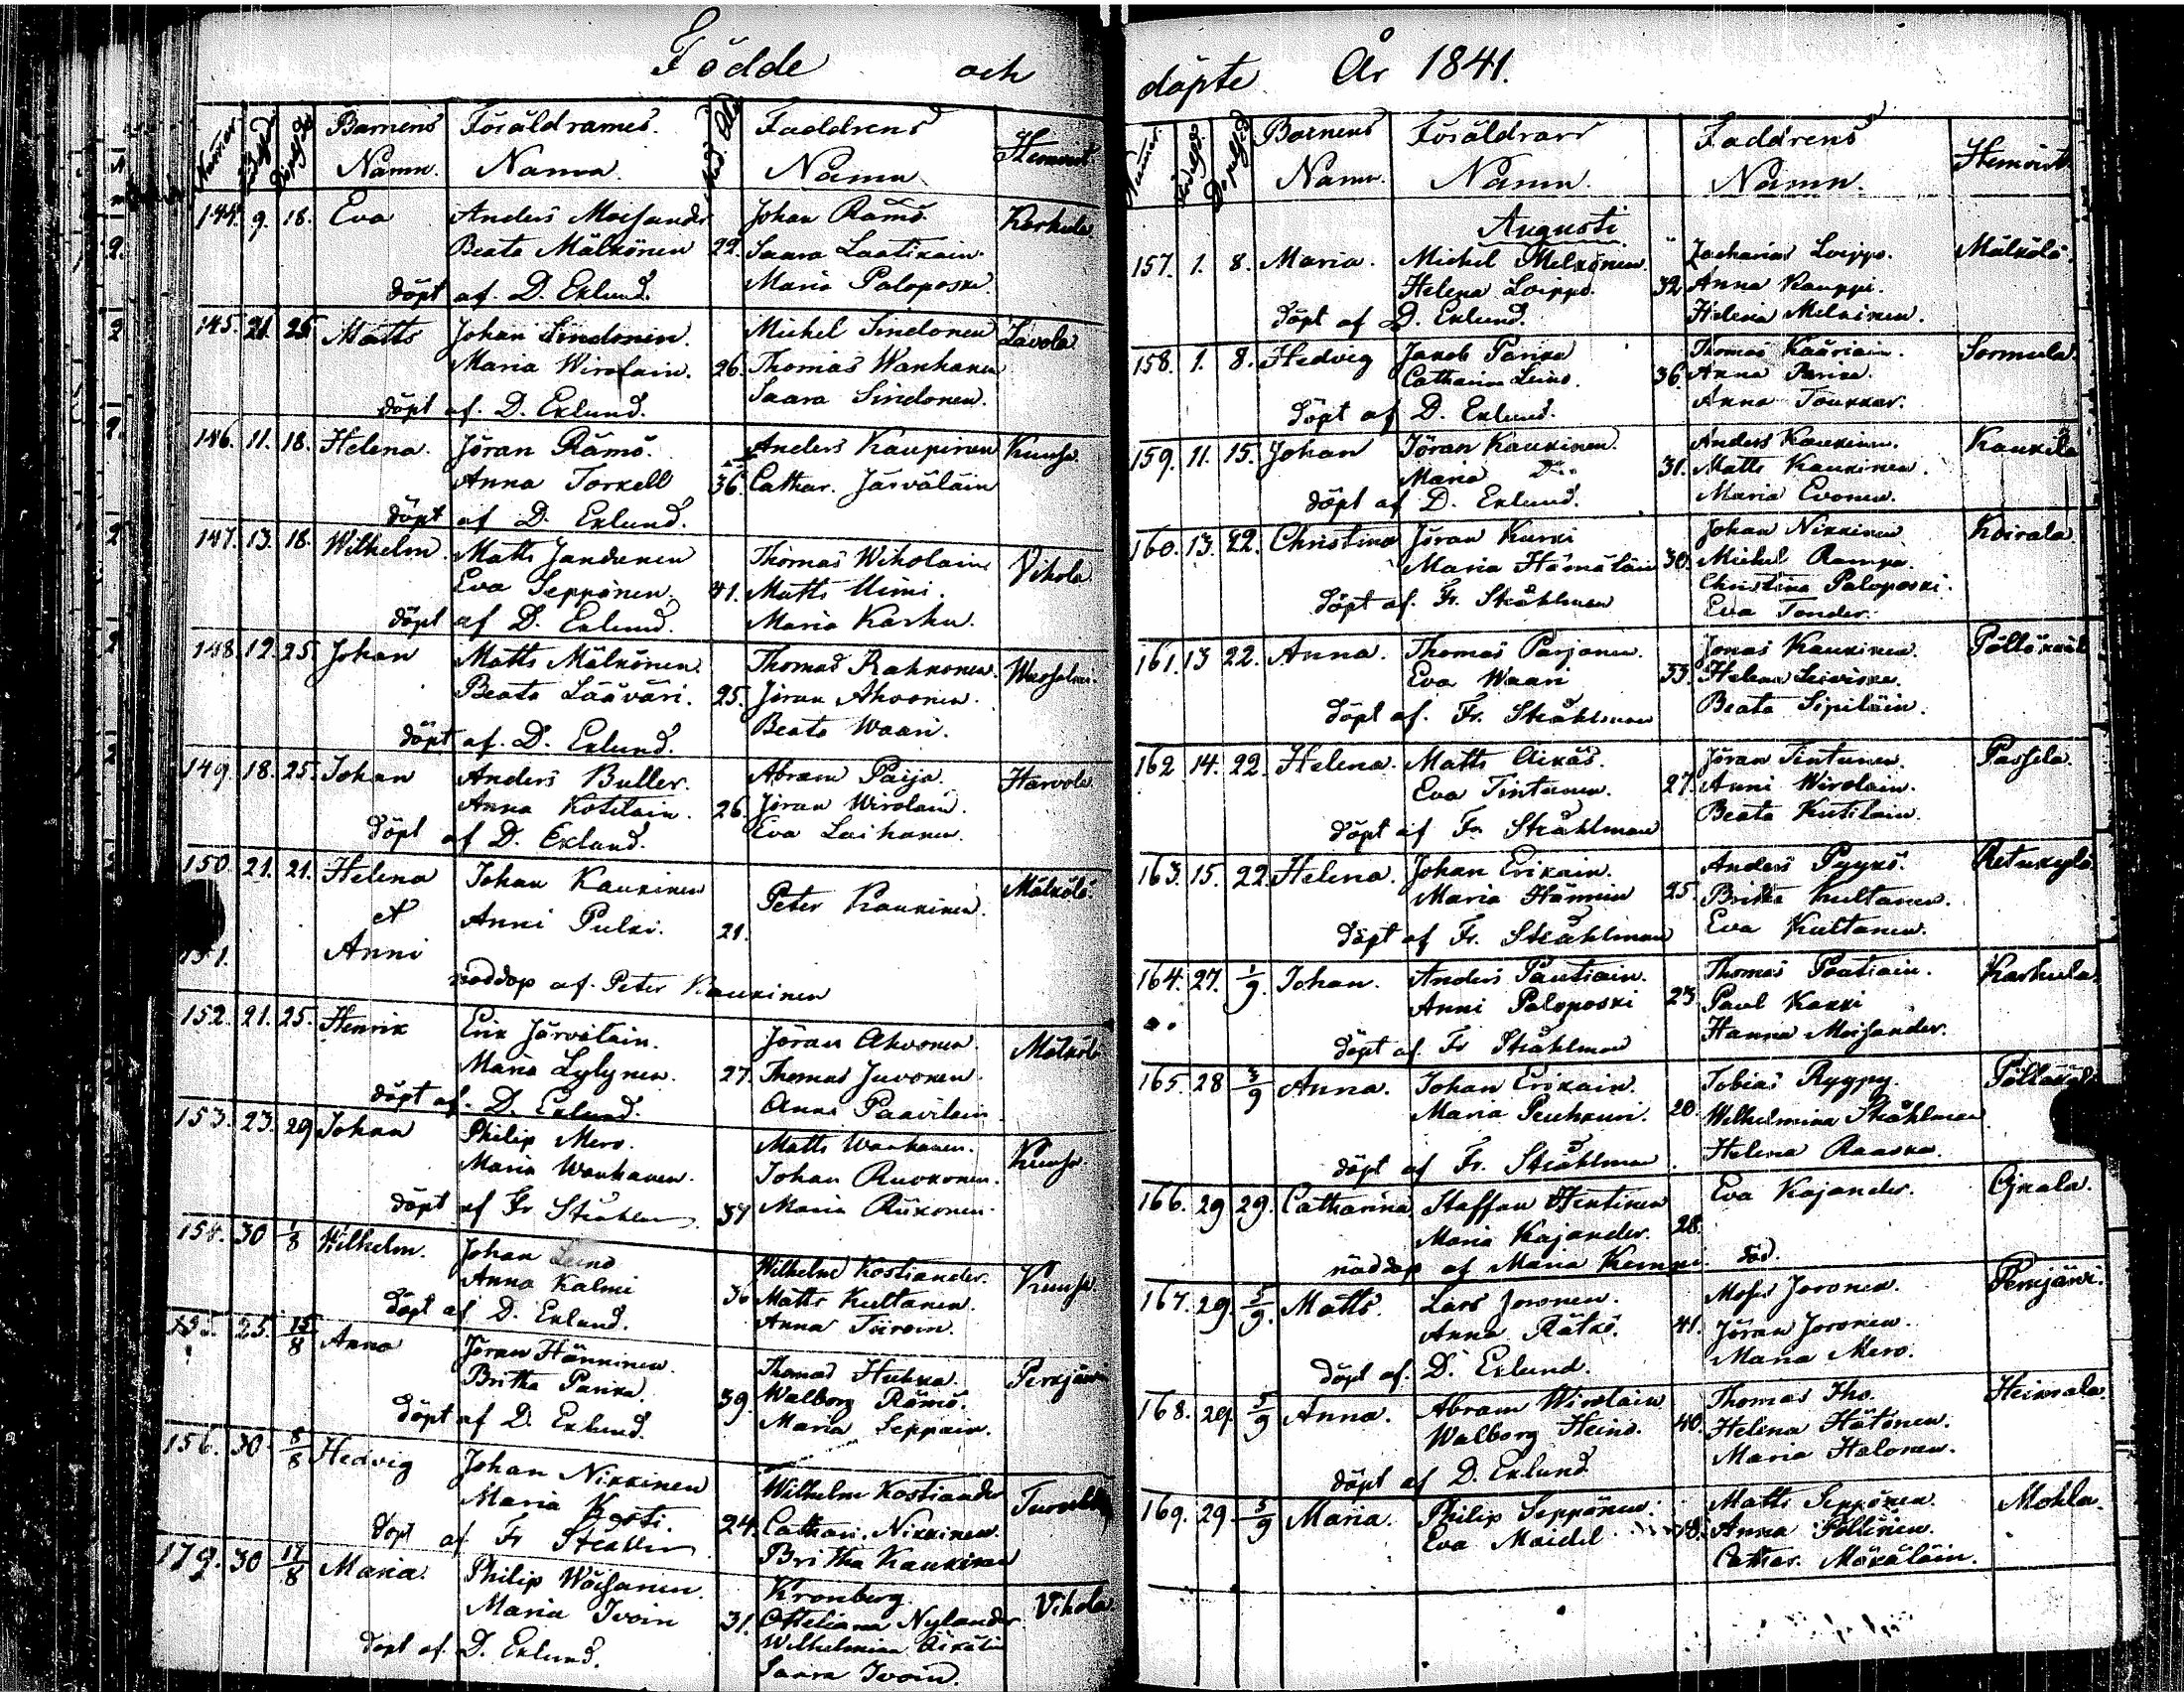 Födde och
Numer Barnens Föräldrarnes Faddrens Hemvist
Namn. Namn Namn
144. 9. 18. Eva Anders Moisander Johan Rämö Karkula
Beata Mälkönen 22. Saara Laatikain
döpt af D. Eklund. Maria Paloposki
145. 21. 25 Matts Johan Sindonen. Michel Sindonen Lavola
Maria Wirolain. 26. Thomas Wanhanen
döpt af. D. Eklund. Saara Sindonen.
146. 11. 18. Helena. Jöran Rämö. Anders Kaupinen Kuusa
Anna Torkell 36. Cathar. Järväläin
döpt af D. Eklund.
147. 13. 18. Wilhelm. Matts Jandunen Thomas Wiholain Vihola
Eva Seppönen. 41. Matts Mimi.
döpt af D. Eklund. Maria Karhu.
148. 12. 25. Johan Matts Mälkönen. Thomas Rahkonen.
Beata Lääväri. 25. Jöran Ahvonen.
döpt af. D. Eklund. Beata Waari.
149. 18. 25. Johan Anders Buller. Abram Paija. Harvola
Anna Kotilain. 26. Jöran Wirolain.
döpt af D. Eklund. Eva Laihanen.
150. 21. 21. Helena Johan Kaukinen Peter Kaukinen. Mälkölä
et Anni Pulki. 21.
151. Anni
nöddop af. Peter Kaukinen
152. 21. 25. Henrik Erik Järvilain. Jöran Ahvonen. Mälkölä
Maria Lylynen. 27. Thomas Juvonen.
döpt af. D. Eklund. Anna Paavilain
153. 23. 29 Johan Philip Mero. Matts Wanhanen. Kuusa
Maria Wanhanen. Johan Ruokonen.
döpt af Fr Stråhlm 37 Maria Riikonen.
154. 30 1/8 Wilhelm. Johan Leino Wilhelm Kostiander. Kuusa
Anna Kalmi 36 Matts Kultanen.
döpt af D. Eklund. Anna Tiiroin.
155. 25. 15/8 Anna Jöran Hänninen. Thomas Huhka. Perkjärvi
Britha Parika. 39. Walborg Rämö.
döpt af D. Eklund. Maria Seppäin.
156. 30. 8/8 Hedvig Johan Nikkinen Wilhelm Kostiander
Maria Kosti. 24. Cathari. Nikkinen.
döpt af Fr Stråhlm Britha Kaukinen
179. 30 17/8 Maria. Philip Wöisanen. Kronberg. Vihola
Maria Ivoin 31. Otteliana Nylander
döpt af. D. Eklund. Wilhelmina
Saara Ivoin.
döpte År 1841.
Numer Barnens Föräldrars Faddrens Hemvist
Namn. Namn. Namn.
Augusti
157. 1. 8. Maria. Michel Melkönen. Zacharias Loippo. Mälkölä.
Helena Loippo. 32 Anna Kauppi.
döpt af D. Eklund. Helena Melainen.
158. 1. 8. Hedvig Jakob Parika Thomas Kääriäin. Sormula.
Catharina Leino. 36. Anna Parika.
döpt af D. Eklund. Anna Toukkar.
159. 11. 15. Johan Jöran Kaukinen. Anders Kaukinen. Kaukila
Maria D:o 31. Matts Kaukinen.
döpt af D. Eklund. Maria Evonen.
160. 13. 22. Christina Jöran Kurki Johan Nikkinen Koirala
Maria Hämäläin 30. Michel Rampa.
döpt af. Fr. Stråhlman Christina Paloposki.
Eva Tonder.
161. 13 22. Anna. Thomas Parjanen. Jonas Kaukinen.
Eva Waari 33. Helena
döpt af. Fr. Stråhlman Beata Sipiläin.
162 14. 22. Helena. Matts Äikäs. Jöran Tintunen. Passela
Eva Tintunen. 27. Anni Wirolain.
döpt af Fr Stråhlman Beata Kutilain.
163. 15. 22 Helena. Johan Erikain. Anders Pyykö. Retukylä
Maria Hännin 25. Britha Kultanen.
döpt af Fr. Stråhlman Eva Kultanen.
164. 27. 1/9. Johan. Anders Pautiain. Thomas Poutiain. Karkula.
Anni Paloposki 23. Paul Kakki
döpt af Fr Stråhlman Hanna Moisander.
165. 28 3/9 Anna. Johan Erikain. Tobias Ryypy.
Maria Peuhkuri. 20. Wilhelmina Stråhlman
döpt af Fr. Stråhlman. Helena Raaska.
166. 29 29. Catharina. Staffan Hentinen Eva Kajander. Ojnala.
Maria Kajander. 28.
nöddop af Maria Kemppi. död.
167. 29 5/9. Matts. Lars Joronen. Moses Joronen. Perkjärvi.
Anna Rätkö. 41. Jöran Joronen.
döpt af. D. Eklund. Maria Mero.
168. 29. 5/9 Anna. Abram Wirolain Thomas Iho. Heinola.
Walborg Heino. 40. Helena Hätönen.
döpt af D. Eklund Maria Halonen.
169. 29 5/9 Maria. Philip Seppönen. Matts Seppönen. Mohla.
Eva Maidel Anna Pöllinen.
Cathar. Mökäläin.